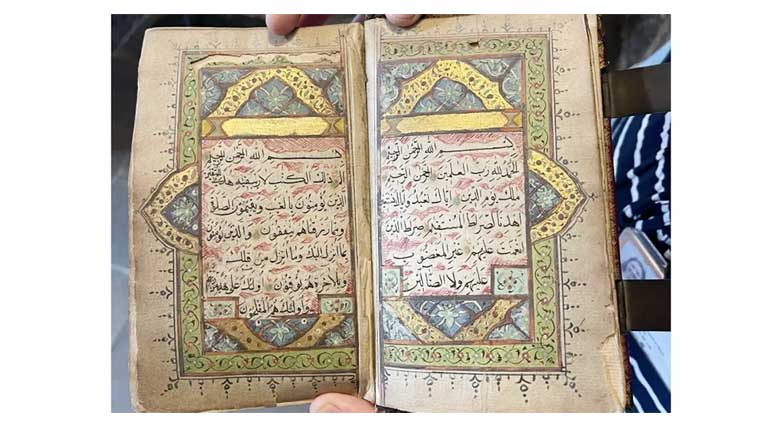 بسم الله الرحمن الرحيم
الحمد لله رب العلمين الرحمن الرحيم
ملك يوم الدين اياك نعبد واياك نستعين
اهدنا الصراط المستقيم صراط الذين
انعمت عليهم غير المغضوب
عليهم ولا الضالين
بسم الله الرحمن الرحيم
الم ذلك الكتب لا ريب فيه هدى للمتقين
الذين يؤمنون بالغيب ويقيمون الصلوة
ومما رزقناهم ينفقون والذين يؤمنون
بما انزل اليك وما انزل من قبلك
وبالاخرة هم يوقنون اولئك على هدى من
واولئك هم المفلحون